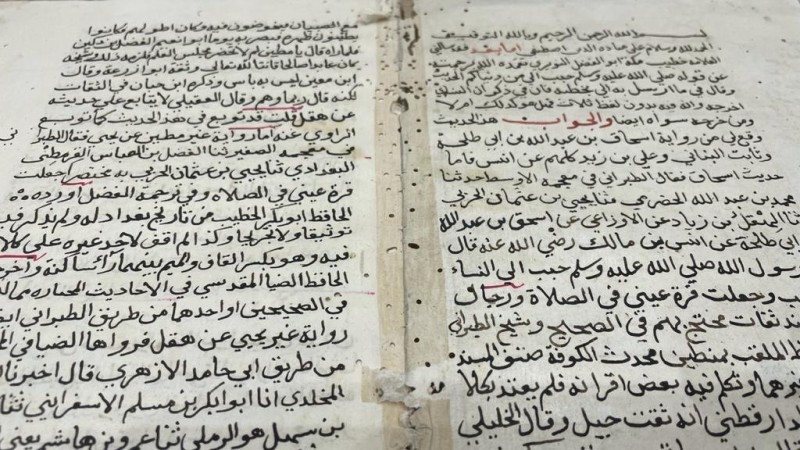 بسم الله الرحمن الرحيم وبالله التوفيق
الحمد لله وسلام على عباده الذين اصطفى اما بعد فقد سالني
عن قوله صلى الله عليه وسلم حبب الي من دنياكم الحديث
اخرجه وانه فيه بدون لفظ ثلاث فهل هو كذلك ام لا
ومن خرجه سواه ايضا والجواب هذا الحديث
وقع لي من رواية اسحاق بن عبد الله بن ابي طلحة
وثابت البناني وعلي بن زيد كلهم عن انس فاما
حديث اسحاق فقال الطبراني في معجمه الاوسط حدثنا
محمد بن عبد الله الحضرمي ثنا يحيى بن عثمان الحربي
ثنا الهقل بن زياد عن الاوزاعي عن اسحق بن عبد الله
ابي طلحة عن انس بن مالك رضي الله عنه قال
رسول الله صلى الله عليه وسلم حبب الي النساء
وجعلت قرة عيني في الصلاة ورجال
ثقات محتج بهم في الصحيح وشيخ الطبراني
الملقب بمطين محدث الكوفة صنف المسند
وتكلم فيه بعض اقرانه فلم يعتد بكلا
دارقطني انه ثقة جبل وقال الخليلي
مع الصبيان
فلما راه قال يا مطين لم لا تحضر مجلس العلم
ابن معين ليس به باس وذكره ابن حبان في الثقات
لكنه قال ربما وهم وقال العقيلي لا يتابع على حديثه
عن هقل قلت قد توبع في هذا الحديث كما توبع
الراوي عنه اما رواية غير مطين عن يحيى فقال الطبرا
في معجمه الصغير ثنا الفضل بن العباس القرطمي
البغدادي ثنا يحيى بن عثمان الحربي به مختصر جعلت
قرة عيني في الصلاة وفي ترجمة الفضل اورده
الحافظ ابو بكر الخطيب من تاريخ بغداد له ولم يذكر فيه
توثيقا ولا تجريحا وكذا لم اقف لاحد غيره على كلا
فيه وهو بكسر القاف والميم بينهما راء ساكنة واخر
الحافظ الضيا المقدسي في الاحاديث المختاره مما
في الصحيحين او احدهما من طريق الطبراني
رواية غير يحيى عن هقل فرواها الضيا في
من طريق ابي حامد الازهري قال اخبرنا
المخلدي انا ابو بكر بن مسلم الاسفرايني ثنا
بن سهيل هو الرملي ثنا عمرو بن هاشم يعني